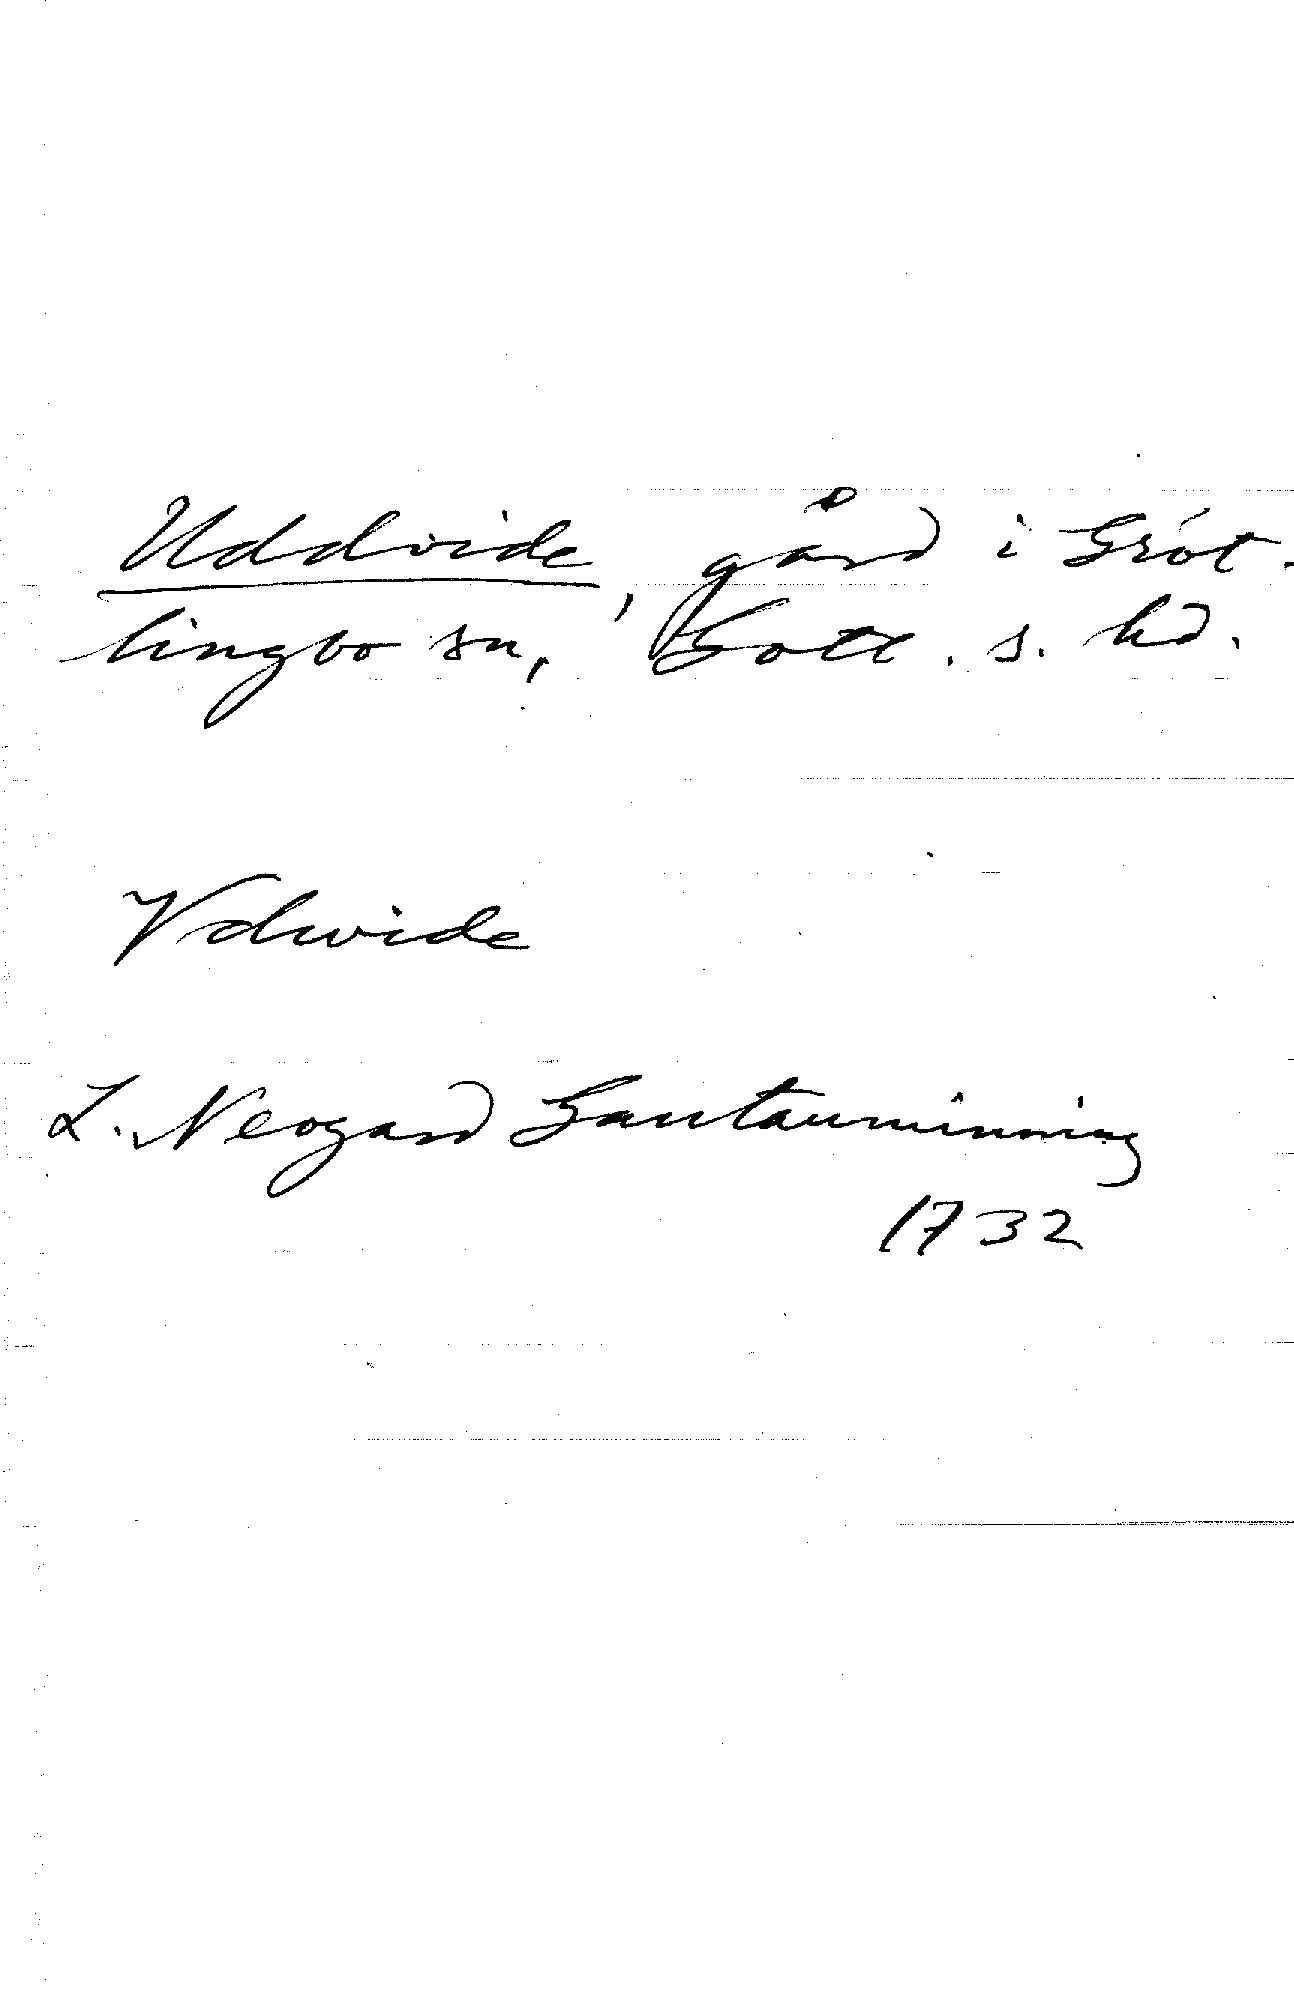 Uddvide, gård i Gröt-
lingbo sn, Gotl. s. hd.
Vdwide
L. Neogard Gautauminning
1732